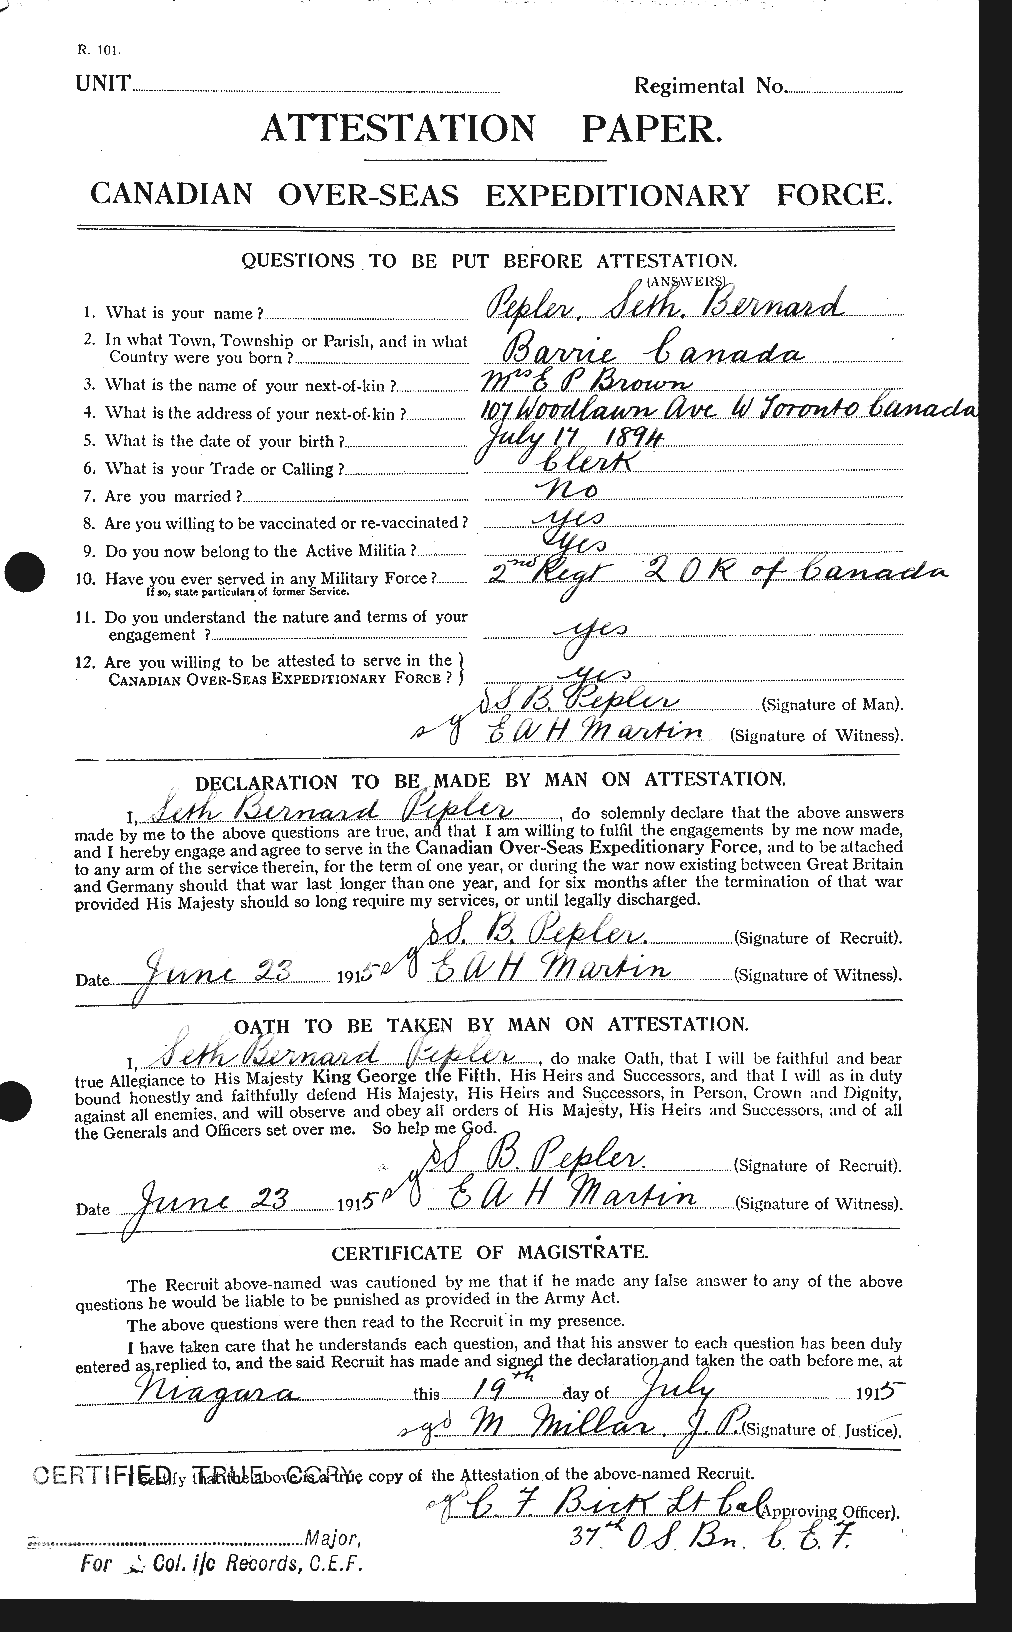 R. 101.
UNIT
Regimental No.
ATTESTATION PAPER.
CANADIAN OVER-SEAS EXPEDITIONARY FORCE.
QUESTIONS TO BE PUT BEFORE ATTESTATION.
(ANSWERS)
1. What is your name? Pepler, Seth. Bernard
2. In what Town, Township or Parish, and in what
Country were you born? Barrie Canada
3. What is the name of your next-of-kin? Mrs E P Brown
4. What is the address of your next-of-kin? 107 Woodlawn Ave W Toronto Canada
5. What is the date of your birth? July 17 1894
6. What is your Trade or Calling? Clerk
7. Are you married? No
8. Are you willing to be vaccinated or re-vaccinated? Yes
9. Do you now belong to the Active Militia? Yes
10. Have you ever served in any Military Force? 2nd Regt 2 O R of Canada
If so, state particulars of former Service.
11. Do you understand the nature and terms of your
engagement? yes
12. Are you willing to be attested to serve in the
CANADIAN OVER-SEAS EXPEDITIONARY FORCE? yes
S B. Pepler (Signature of Man).
sgd E A H Martin (Signature of Witness).
DECLARATION TO BE MADE BY MAN ON ATTESTATION.
I, Seth Bernard Pepler, do solemnly declare that the above answers
made by me to the above questions are true, and that I am willing to fulfil the engagements by me now made,
and I hereby engage and agree to serve in the Canadian Over-Seas Expeditionary Force, and to be attached
to any arm of the service therein, for the term of one year, or during the war now existing between Great Britain
and Germany should that war last longer than one year, and for six months after the termination of that war
provided His Majesty should so long require my services, or until legally discharged.
S. B. Pepler. (Signature of Recruit).
Date June 23 1915 sgd E A H Martin (Signature of Witness).
OATH TO BE TAKEN BY MAN ON ATTESTATION.
I, Seth Bernard Pepler, do make Oath, that I will be faithful and bear
true Allegiance to His Majesty King George the Fifth, His Heirs and Successors, and that I will as in duty
bound honestly and faithfully defend His Majesty, His Heirs and Successors, in Person, Crown and Dignity,
against all enemies, and will observe and obey all orders of His Majesty, His Heirs and Successors, and of all
the Generals and Officers set over me. So help me God.
S B. Pepler. (Signature of Recruit).
Date June 23 1915 sgd E A H Martin (Signature of Witness).
CERTIFICATE OF MAGISTRATE.
The Recruit above-named was cautioned by me that if he made any false answer to any of the above
questions he would be liable to be punished as provided in the Army Act.
The above questions were then read to the Recruit in my presence.
I have taken care that he understands each question, and that his answer to each question has been duly
entered as replied to, and the said Recruit has made and signed the declaration and taken the oath before me, at
Niagara this 19th day of July 1915
sgd M Millar. J. P. (Signature of Justice).
CERTIFIED TRUE COPY.
I certify that the above is a true copy of the Attestation of the above-named Recruit.
sgd C F Bick Lt Col (Approving Officer).
37th O S. Bn. C. E. F.
Major,
For Col. i/c Records, C.E.F.